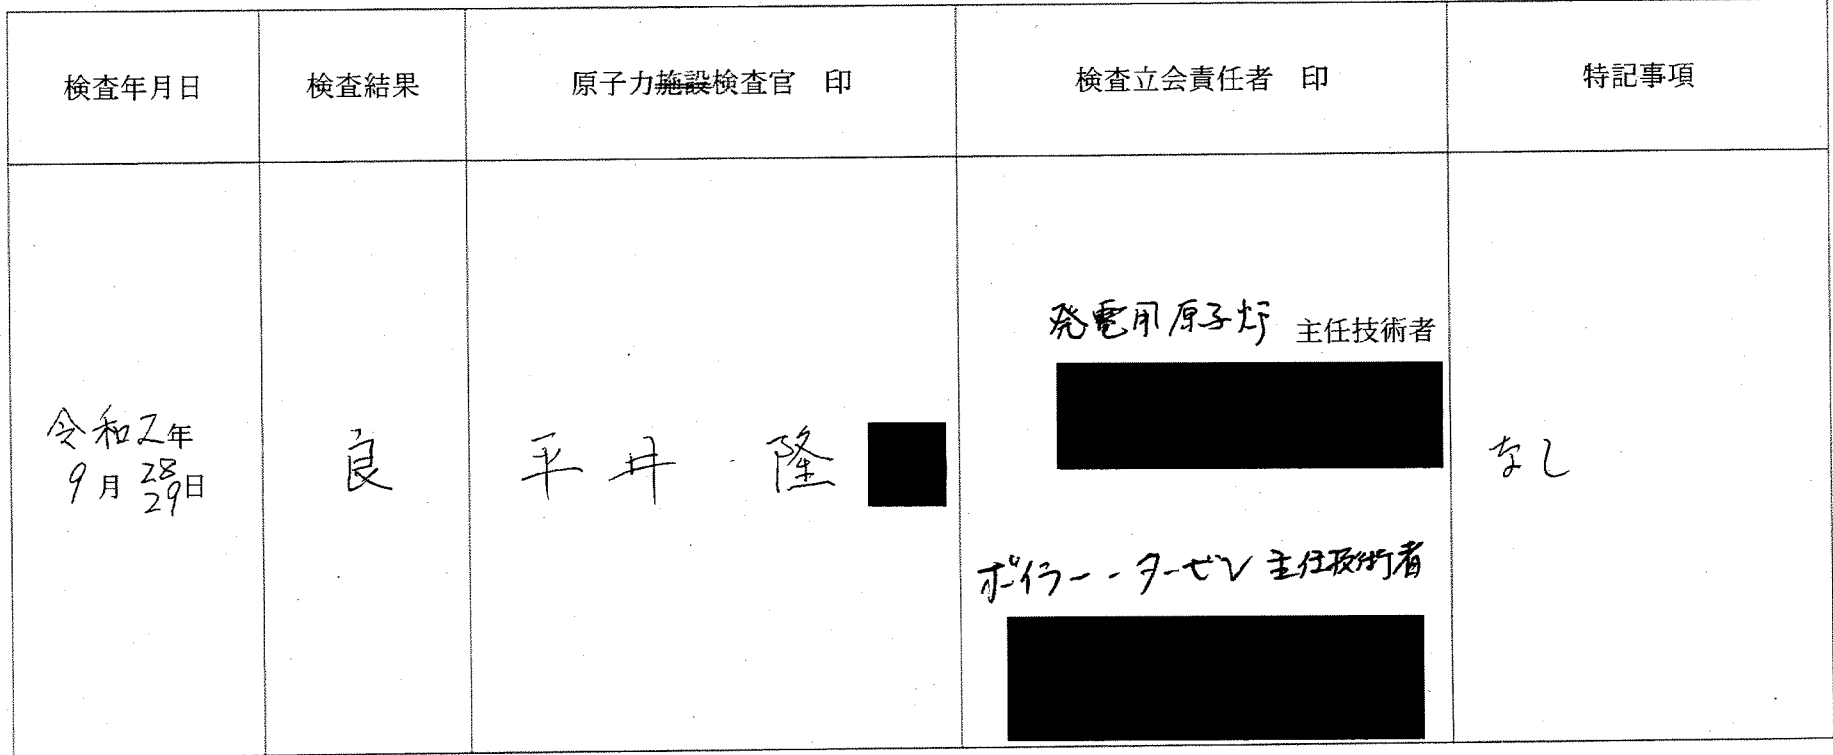 検査年月日
検査結果
原子力施設検査官 印
検査立会責任者 印
特記事項
令和2年
9月28日
29
良
平井 隆
発電用原子炉 主任技術者
ボイラー・タービン主任技術者
なし